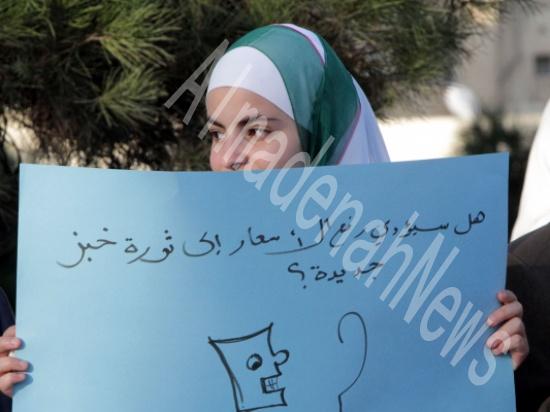 هل سيؤدي رفع الأسعار إلى ثورة خبز
جديدة؟
AlmadenahNews